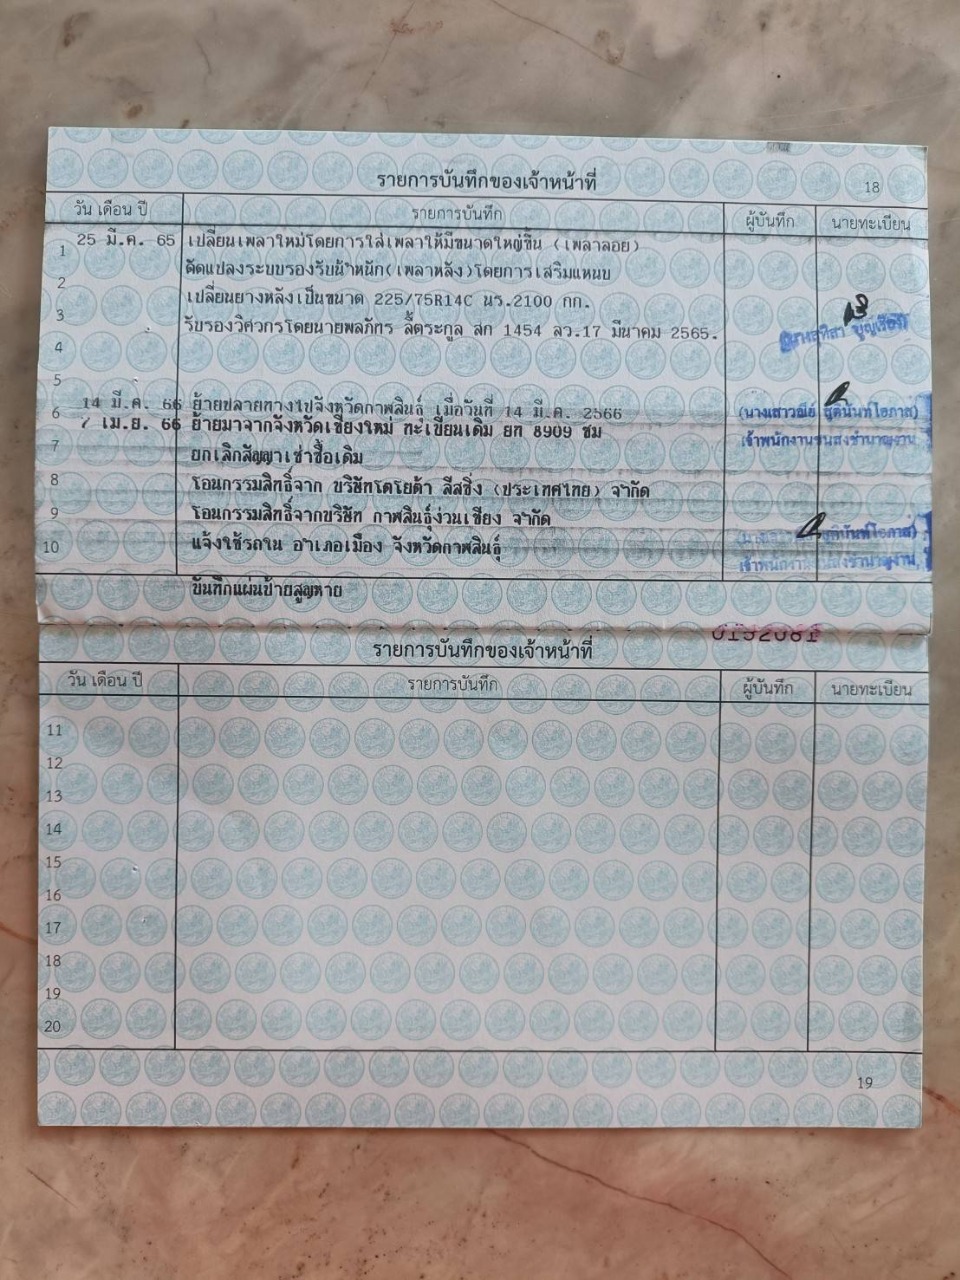 รายการบันทึกของเจ้าหน้าที่
18
วัน เดือน ปี รายการบันทึก ผู้บันทึก นายทะเบียน
1 25 มี.ค. 65 เปลี่ยนเพลาใหม่โดยการใส่เพลาให้มีขนาดใหญ่ขึ้น (เพลาลอย)
2 ดัดแปลงระบบรองรับน้ำหนัก(เพลาหลัง)โดยการเสริมแหนบ
3 เปลี่ยนยางหลังเป็นขนาด 225/75R14C นร.2100 กก.
4 รับรองวิศวกรโดยนายพลภัทร ลี้ตระกูล สก 1454 ลว.17 มีนาคม 2565.
5
6 14 มี.ค. 66 ย้ายปลายทางไปจังหวัดกาฬสินธุ์ เมื่อวันที่ 14 มี.ค. 2566
(นางเสาวณีย์ สุตนันท์โอภาส)
7 เม.ย. 66 ย้ายมาจากจังหวัดเชียงใหม่ ทะเบียนเดิม ยท 8909 ชม
เจ้าพนักงานขนส่งชำนาญงาน
7 ยกเลิกสัญญาเช่าซื้อเดิม
8 โอนกรรมสิทธิ์จาก บริษัทโตโยต้า ลีสซิ่ง (ประเทศไทย) จำกัด
9 โอนกรรมสิทธิ์จากบริษัท กาฬสินธุ์ง่วนเชียง จำกัด
10 แจ้งใช้รถใน อำเภอเมือง จังหวัดกาฬสินธุ์
เจ้าพนักงานขนส่งชำนาญงาน
บันทึกแผ่นป้ายสูญหาย
0192081
รายการบันทึกของเจ้าหน้าที่
วัน เดือน ปี รายการบันทึก ผู้บันทึก นายทะเบียน
11
12
13
14
15
16
17
18
19
20
19